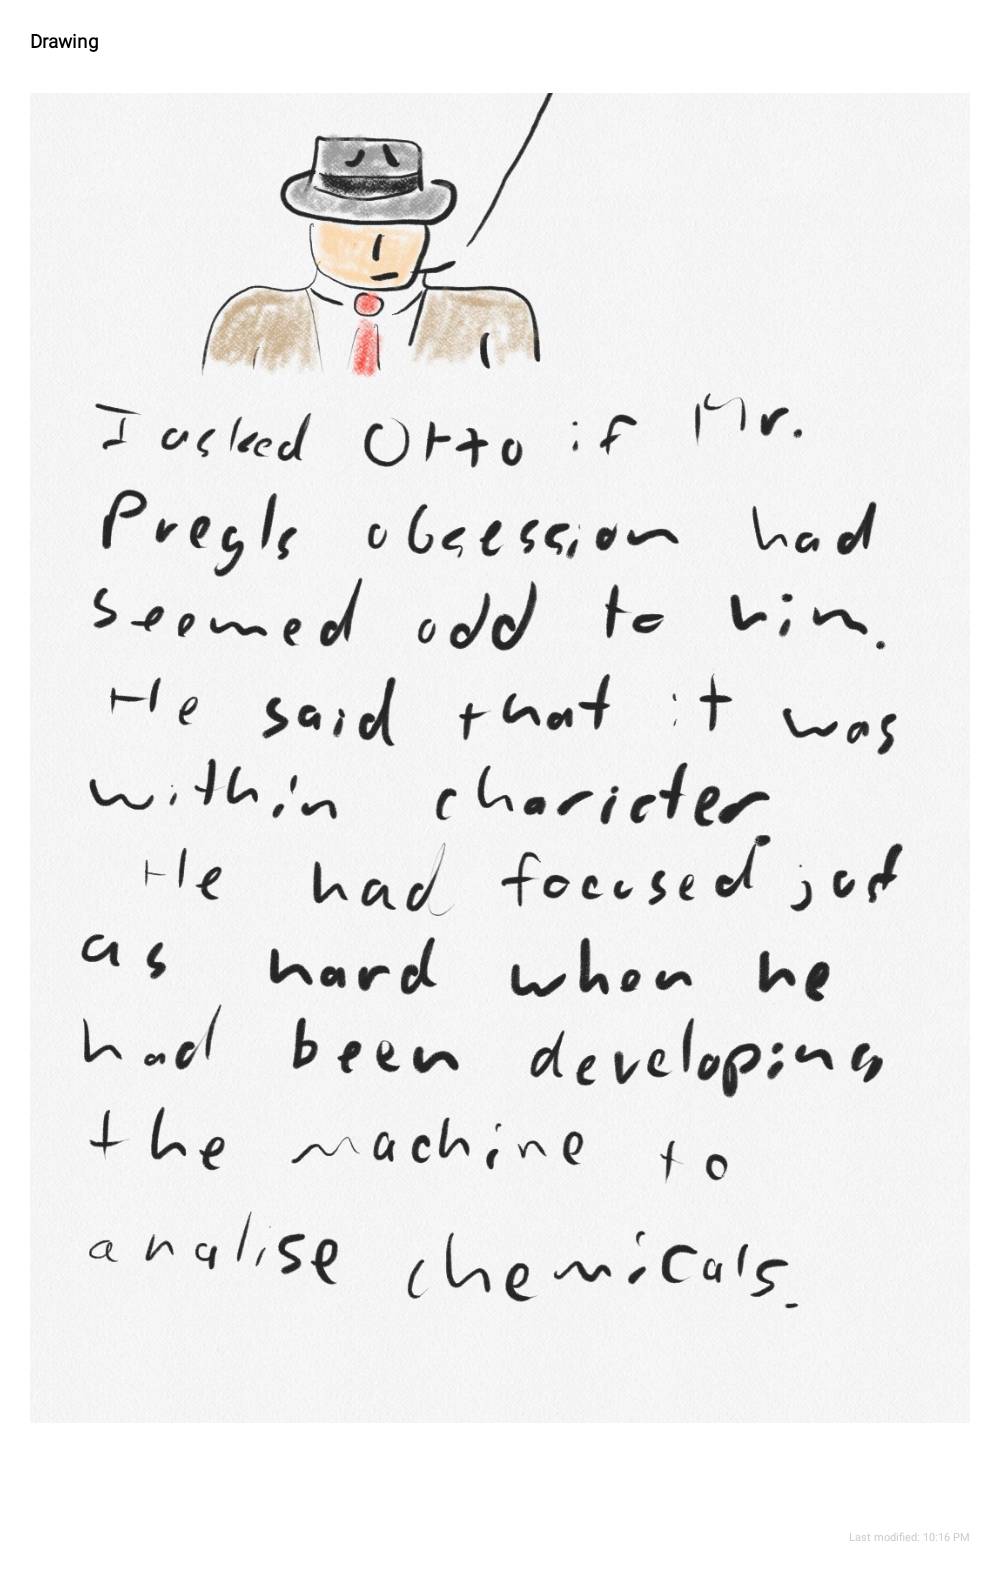 Drawing
I asked Otto if Mr.
Pregls obsession had
seemed odd to him.
He said that it was
within charicter.
He had focused just
as hard when he
had been developing
the machine to
analise chemicals.
Last modified: 10:16 PM